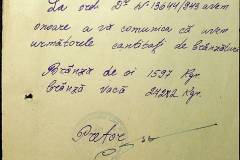 La ord. Dv. Nr. 13644/943 avem
onoare a vă comunica că avem
următoarele cantităţi de brânzeturi
Brânză de oi 1597 Kgr.
Brânză vacă 24242 Kgr.
Pretor